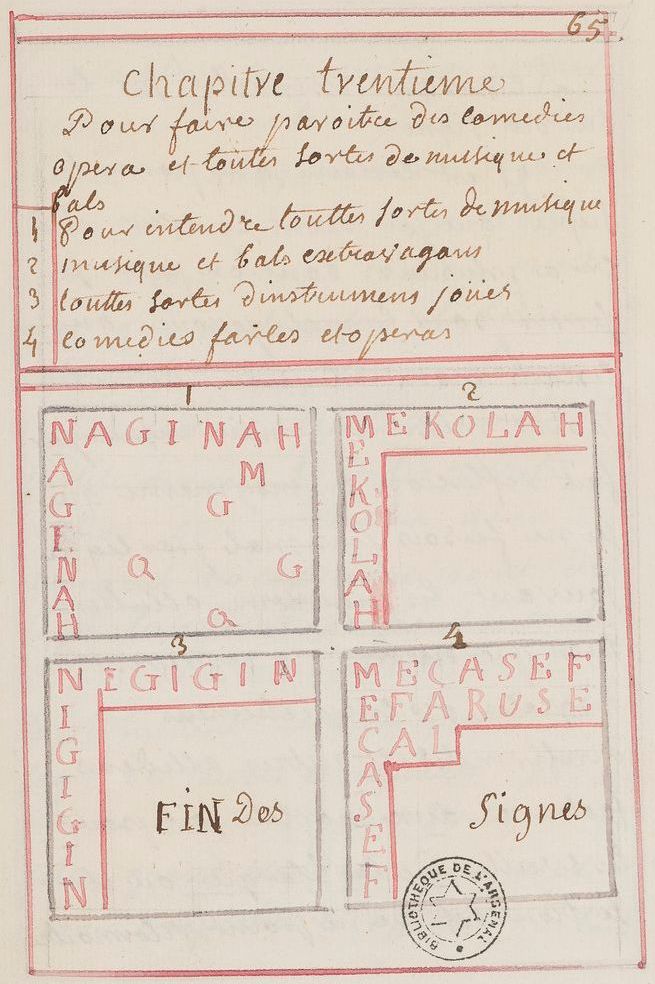 65
Chapitre trentieme
Pour faire paroitre des comedies
opera et toutes sortes de musique et
bals
1 Pour intendre touttes sortes de musique
2 musique et bals extravagans
3 touttes sortes dinstrumens joües
4 comedies farces et operas
1
NAGINAH
A M
G G
E
N Q G
A
H Q
2
MEKOLAH
E
K
O
L
A
H
3
NIGIGIN
I
G
I
G
I
N
FIN Des
4
MECASEF
EFARUSE
CAL
A
S
E
F
Signes
BIBLIOTHEQUE DE L'ARSENAL